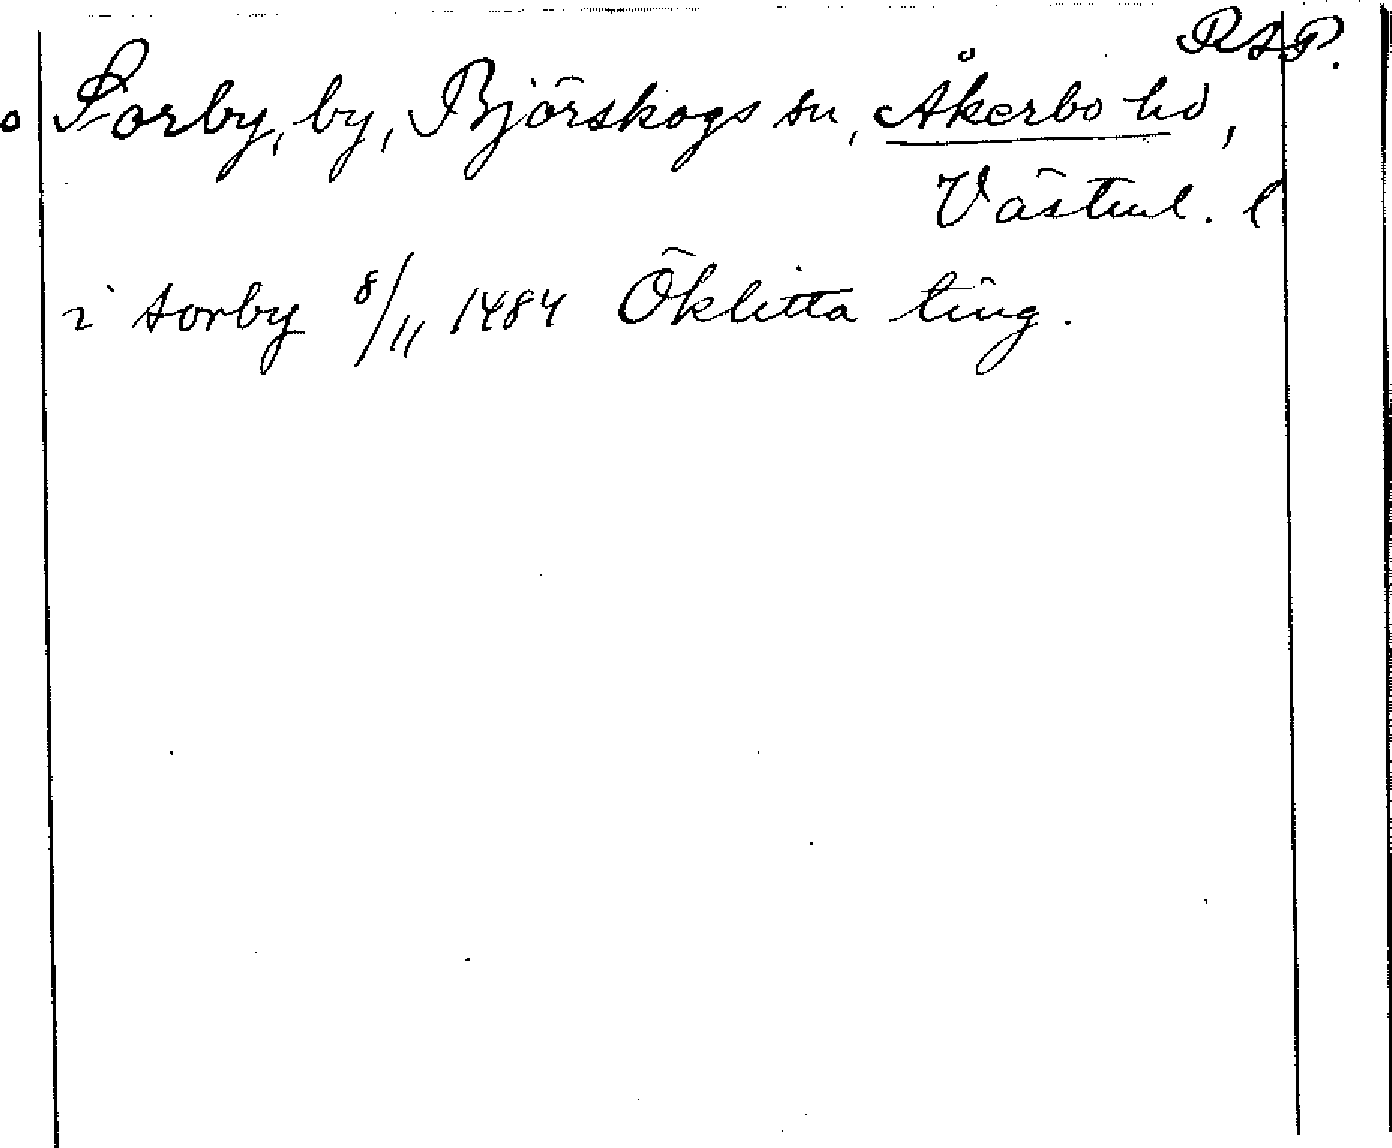 RAP.
Sorby, by, Björskogs sn, Åkerbo hd,
Västml. l
i sorby 8/11 1484 Öklitta ting.